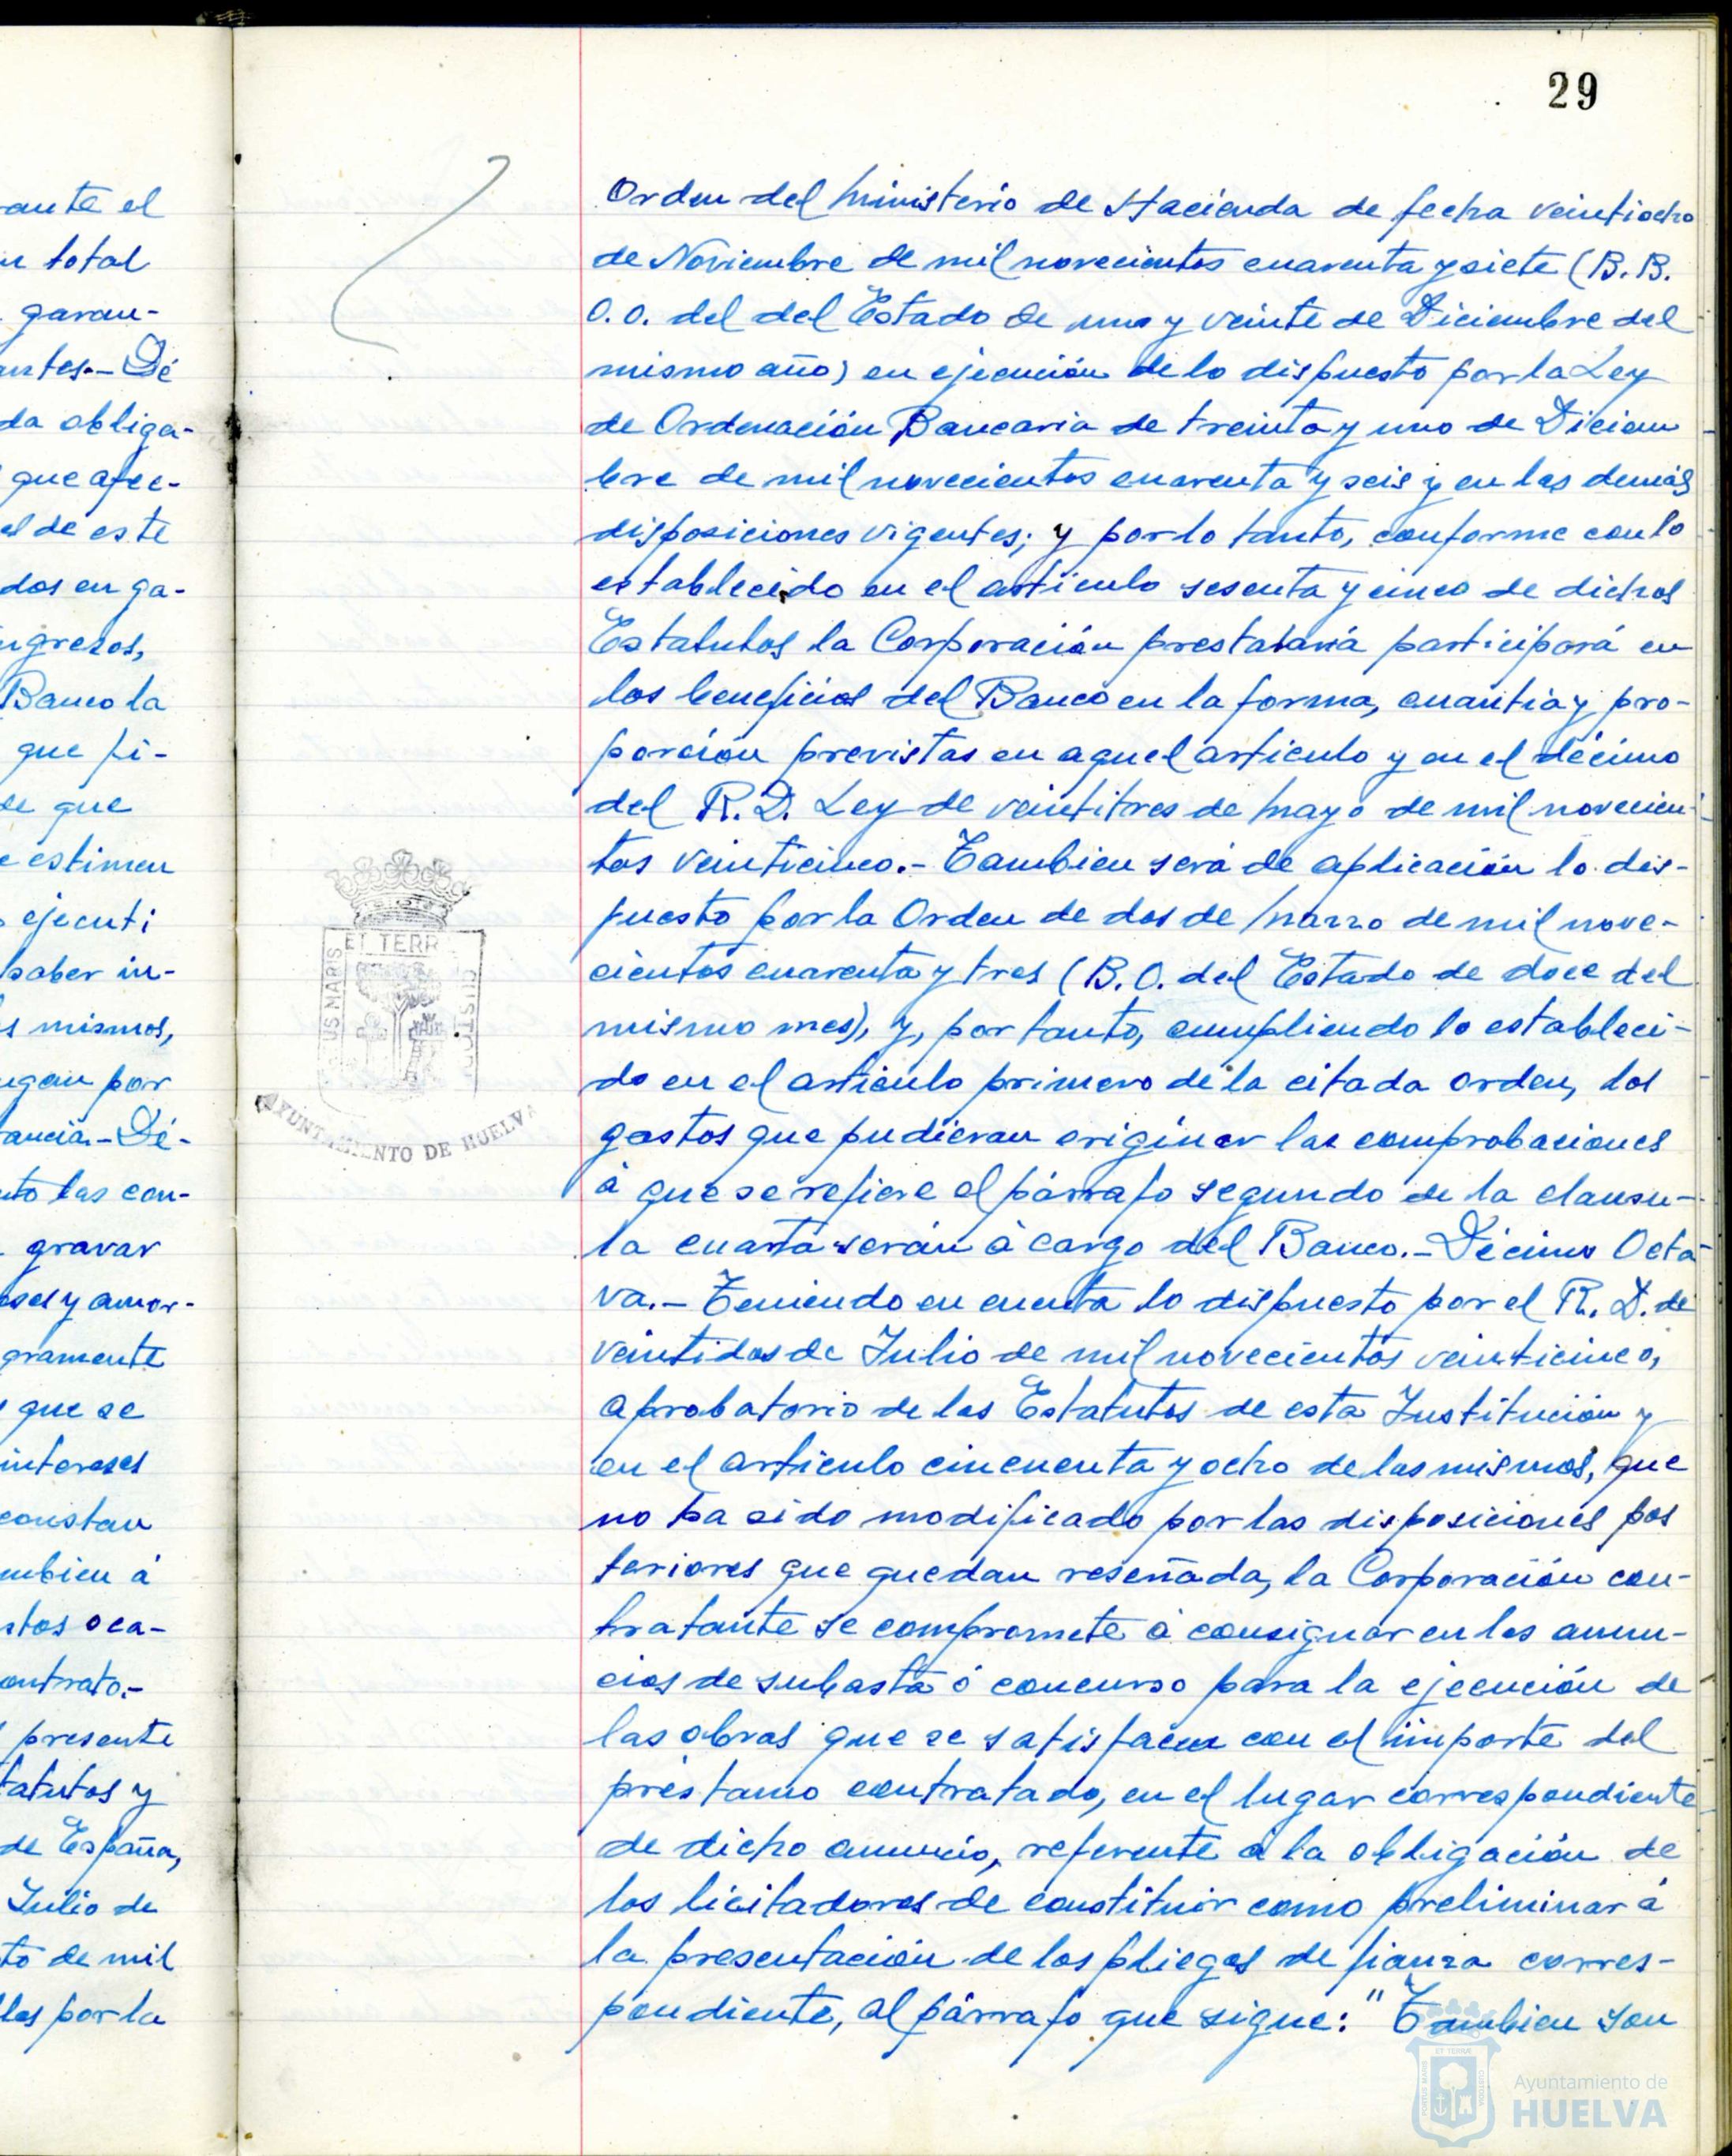 29
ante el
total
garan-
antes.- Dé
da obliga-
que afec-
el de este
dos en ga-
ngresos,
Banco la
que fi-
de que
estimen
ejecuti
saber in-
s mismos,
ngan por
ancia.- Dé-
nto las con-
gravar
eses y amor-
gramente
que se
intereses
constan
mbien á
stos oca-
ontrato.-
presente
tatutos y
de España,
Julio de
to de mil
los por la
Orden del Ministerio de Hacienda de fecha veintiocho
de Noviembre de mil novecientos cuarenta y siete (B. B.
O. O. del del Estado de uno y veinte de Diciembre del
mismo año) en ejecución de lo dispuesto por la Ley
de Ordenación Bancaria de treinta y uno de Diciem
bre de mil novecientos cuarenta y seis y en las demás
disposiciones vigentes; y por lo tanto, conforme con lo
establecido en el artículo sesenta y cinco de dichos
Estatutos la Corporación prestataria participará en
los beneficios del Banco en la forma, cuantia y pro-
porción previstas en aquel articulo y en el décimo
del R. D. Ley de veintitres de Mayo de mil novecien-
tos veinticinco.- Tambien será de aplicación lo dis-
puesto por la Orden de dos de Marzo de mil nove-
cientos cuarenta y tres (B. O. del Estado de doce del
mismo mes), y, por tanto, cumpliendo lo estableci-
do en el articulo primero de la citada orden, los
gastos que pudieran originar las comprobaciones
á que se refiere el párrafo segundo de la clausu-
la cuarta serán á cargo del Banco.- Décimo Octa-
va.- Teniendo en cuenta lo dispuesto por el R. D. de
veintidos de Julio de mil novecientos veinticinco,
aprobatorio de los Estatutos de esta Institución y
en el articulo cincuenta y ocho de los mismos, que
no ha sido modificado por las disposiciones pos
teriores que quedan reseñada, la Corporación con-
tratante se compromete á consignar en los anun-
cios de subasta ó concurso para la ejecución de
las obras que se satisfacen con el importe del
préstamo contratado, en el lugar correspondiente
de dicho anuncio, referente á la obligación de
los licitadores de constituir como preliminar á
la presentación de los pliegos de fianza corres-
pondiente, al párrafo que sigue: "Tambien son
ET TERR
US MARIS
CUSTOD
AYUNTAMIENTO DE HUELVA
Ayuntamiento de
HUELVA